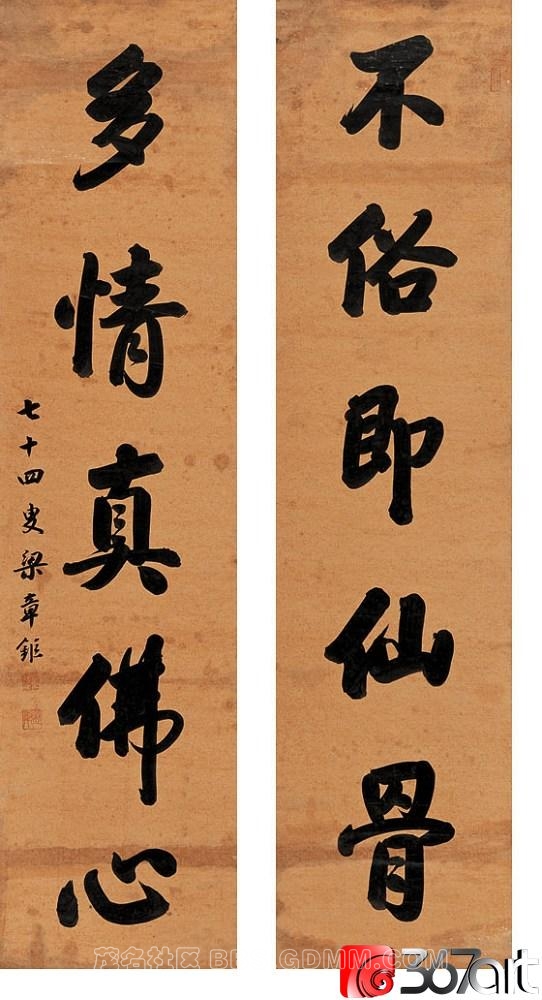 不俗即仙骨
多情真佛心
七十四叟梁章鉅
茂名社区 BBS.GDMM.COM
367art